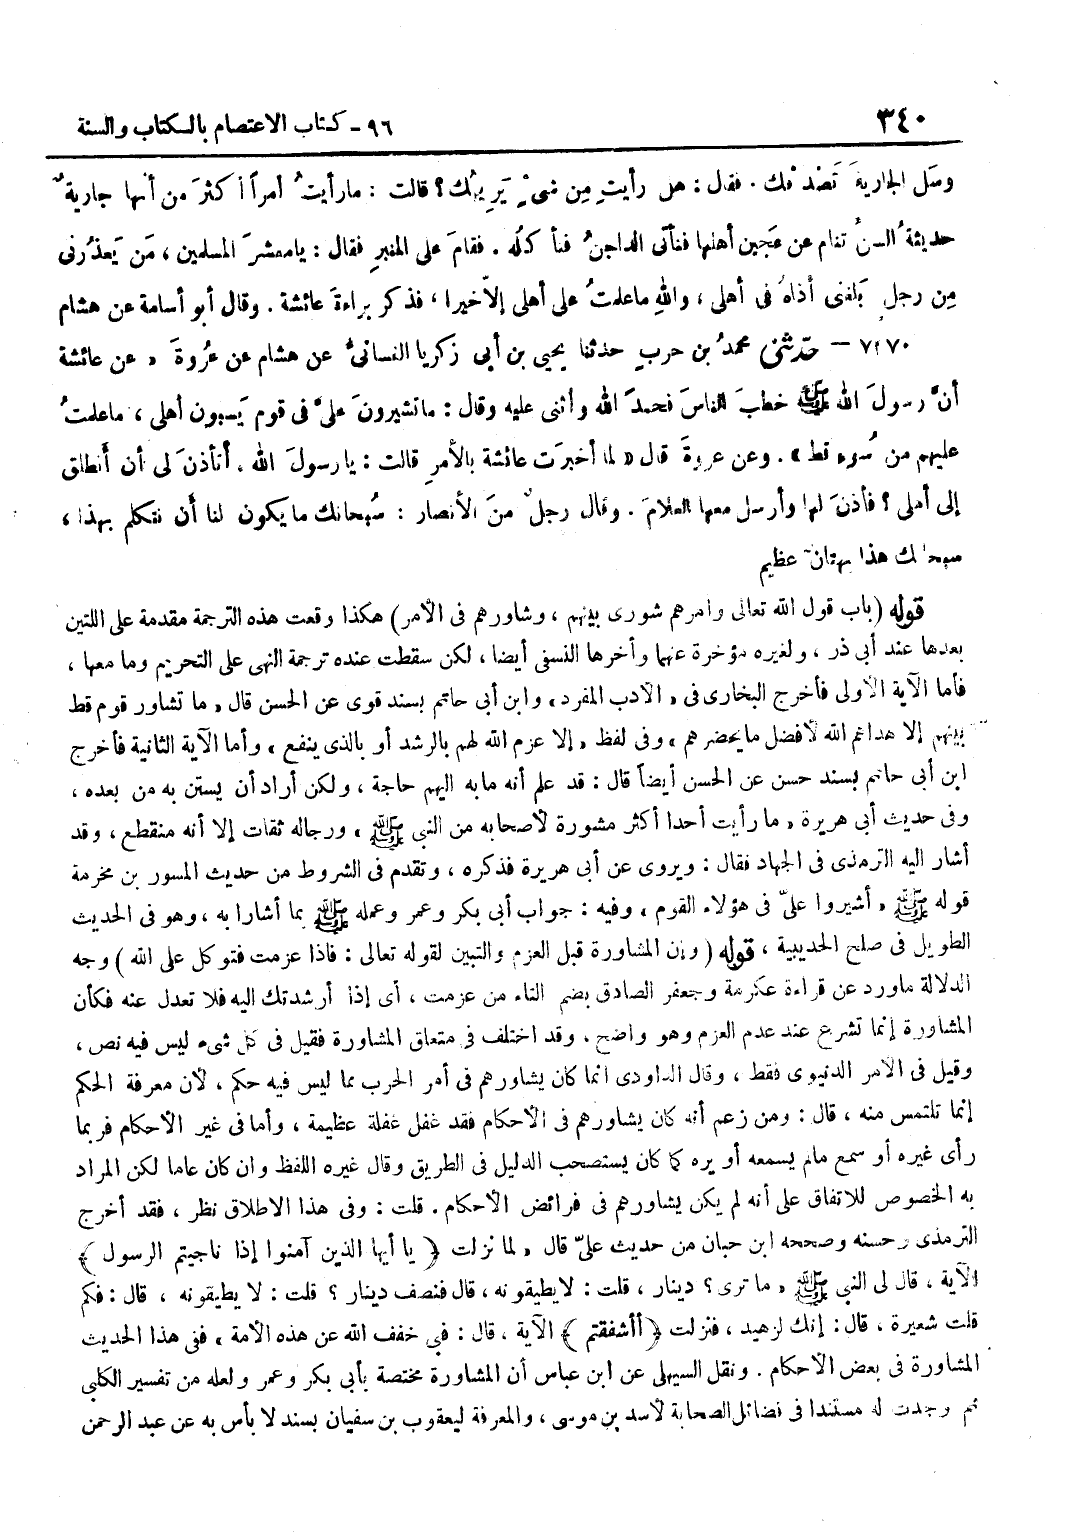 ٣٤٠
٩٦ - كتاب الاعتصام بالكتاب والسنة
وسَل الجاريةَ تَصْدُقك . فقال : هل رأيتِ مِن شىْءٍ يَرِيبُك ؟ قالت : مارأيتُ أمراً أكثرَ من أنها جاريةٌ
حديثةُ السنِّ تنام عن عَجين أهلها فتأتى الداجنُ فتأكلُه . فقامَ على المنبرِ فقال : يامعشرَ المسلمين ، مَن يَعذُرنى
مِن رجلٍ بَلغنى أذاهُ فى أهلى ، واللهِ ماعلمتُ على أهلى إلاّخيرا ، فذكر براءةَ عائشة . وقال أبو أسامة عن هشام
٧٣٧٠ – حدّثنى محمدُ بن حربٍ حدثنا يحيى بن أبى زكريا الغسانىُّ عن هشام عن عُروةَ « عن عائشة
أنَّ رسولَ الله ﷺ خطبَ الناسَ فحمدَ الله وأثنى عليه وقال : ماتُشيرونَ علىَّ فى قوم يَسبون أهلى ، ماعلمتُ
عليهم من سُوء قط » . وعن عروةَ قال « لما أخبرَت عائشة بالأمرِ قالت : يارسولَ الله ، أتأذنَ لى أن أَنطلق
إلى أهلى ؟ فأذنَ لها وأرسل معها الغلامَ . وقال رجلٌ منَ الأنصار : سُبحانك مايكون لنا أَن نتكلم بهذا ،
سبحانك هذا بهتانٌ عظيم
قوله ( باب قول الله تعالى وأمرهم شورى بينهم ، وشاورهم فى الأمر ) هكذا وقعت هذه الترجمة مقدمة على اللتين
بعدها عند أبى ذر ، ولغيره مؤخرة عنهما وأخرها النسفى أيضا ، لكن سقطت عنده ترجمة النهى على التحريم وما معها ،
فأما الآية الأولى فأخرج البخارى فى « الأدب المفرد » وابن أبى حاتم بسند قوى عن الحسن قال « ما تشاور قوم قط
بينهم إلا هداهم الله لأفضل مايحضرهم » وفى لفظ « إلا عزم الله لهم بالرشد أو بالذى ينفع » وأما الآية الثانية فأخرج
ابن أبى حاتم بسند حسن عن الحسن أيضاً قال : قد علم أنه مابه اليهم حاجة ، ولكن أراد أن يستن به من بعده ،
وفى حديث أبى هريرة « ما رأيت أحدا أكثر مشورة لأصحابه من النبى ﷺ » ورجاله ثقات إلا أنه منقطع ، وقد
أشار اليه الترمذى فى الجهاد فقال : ويروى عن أبى هريرة فذكره ، وتقدم فى الشروط من حديث المسور بن مخرمة
قوله ﷺ « أشيروا علىّ فى هؤلاء القوم » وفيه : جواب أبى بكر وعمر وعمله ﷺ بما أشارا به ، وهو فى الحديث
الطويل فى صلح الحديبية ، قوله ( وإن المشاورة قبل العزم والتبين لقوله تعالى : فاذا عزمت فتوكل على الله ) وجه
الدلالة ماورد عن قراءة عكرمة وجعفر الصادق بضم التاء من عزمت ، أى إذا أرشدتك اليه فلا تعدل عنه فكأن
المشاورة إنما تشرع عند عدم العزم وهو واضح ، وقد اختلف فى متعلق المشاورة فقيل فى كل شىء ليس فيه نص ،
وقيل فى الأمر الدنيوى فقط ، وقال الداودى انما كان يشاورهم فى أمر الحرب مما ليس فيه حكم ، لأن معرفة الحكم
إنما تلتمس منه ، قال : ومن زعم أنه كان يشاورهم فى الأحكام فقد غفل غفلة عظيمة ، وأما فى غير الأحكام فربما
رأى غيره أو سمع مالم يسمعه أو يره كما كان يستصحب الدليل فى الطريق وقال غيره اللفظ وان كان عاما لكن المراد
به الخصوص للاتفاق على أنه لم يكن يشاورهم فى فرائض الأحكام . قلت : وفى هذا الاطلاق نظر ، فقد أخرج
الترمذى وحسنه وصححه ابن حبان من حديث علىّ قال « لما نزلت ﴿ يا أيها الذين آمنوا إذا ناجيتم الرسول ﴾
الآية ، قال لى النبى ﷺ « ما ترى ؟ دينار ، قلت : لايطيقونه ، قال فنصف دينار ؟ قلت : لا يطيقونه ، قال : فكم
قلت شعيرة ، قال : إنك لزهيد ، فنزلت ﴿ أأشفقتم ﴾ الآية ، قال : فبى خفف الله عن هذه الأمة » ففى هذا الحديث
المشاورة فى بعض الأحكام . ونقل السهيلى عن ابن عباس أن المشاورة مختصة بأبى بكر وعمر ولعله من تفسير الكلبى
ثم وجدت له مستندا فى فضائل الصحابة لأسد بن موسى ، والمعرفة ليعقوب بن سفيان بسند لا بأس به عن عبد الرحمن